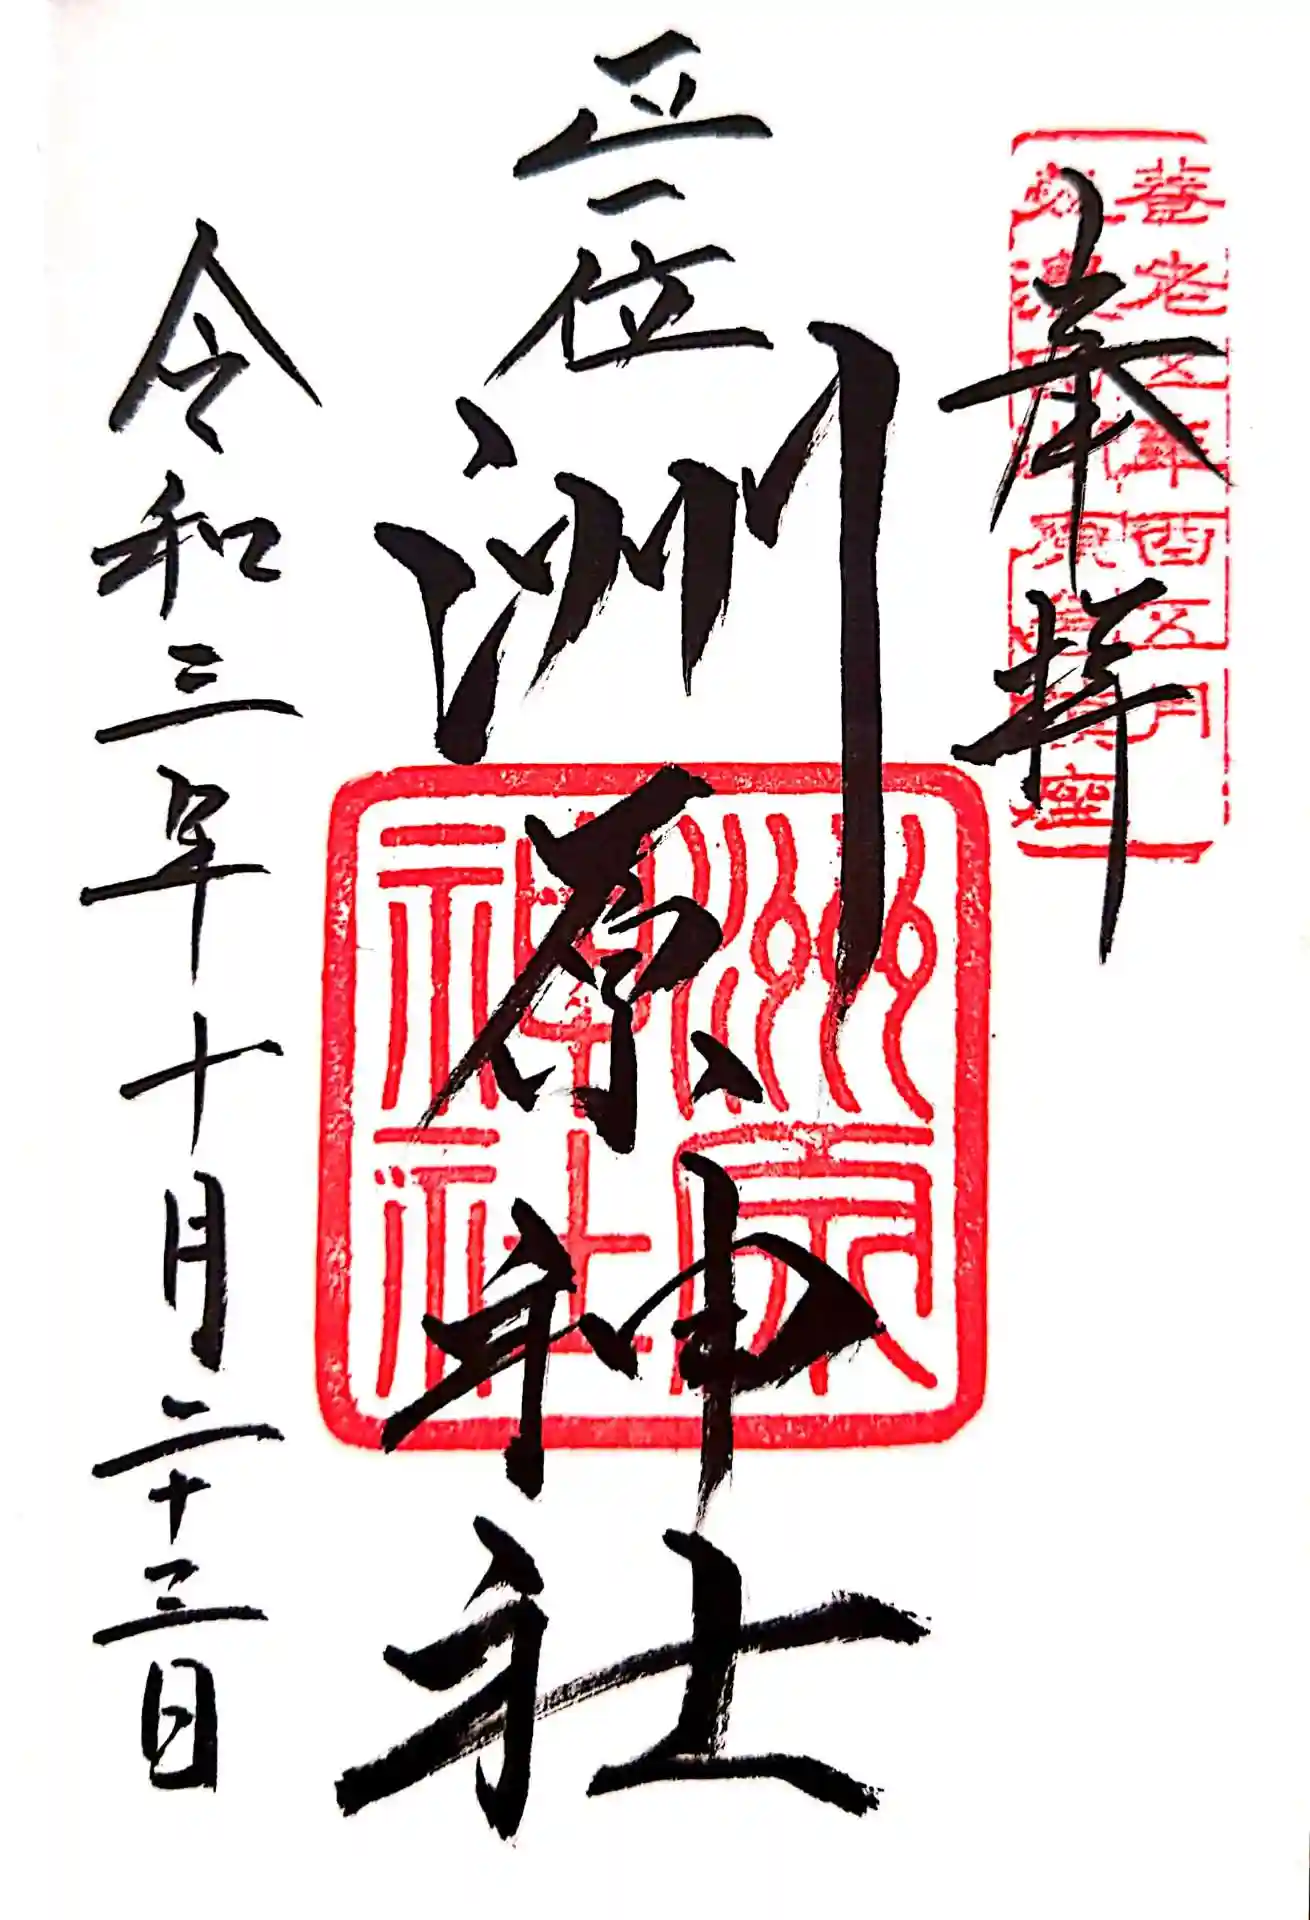 養老五年酉五月
奉拝
正一位
洲原神社
洲原
神社
令和三年十月二十三日